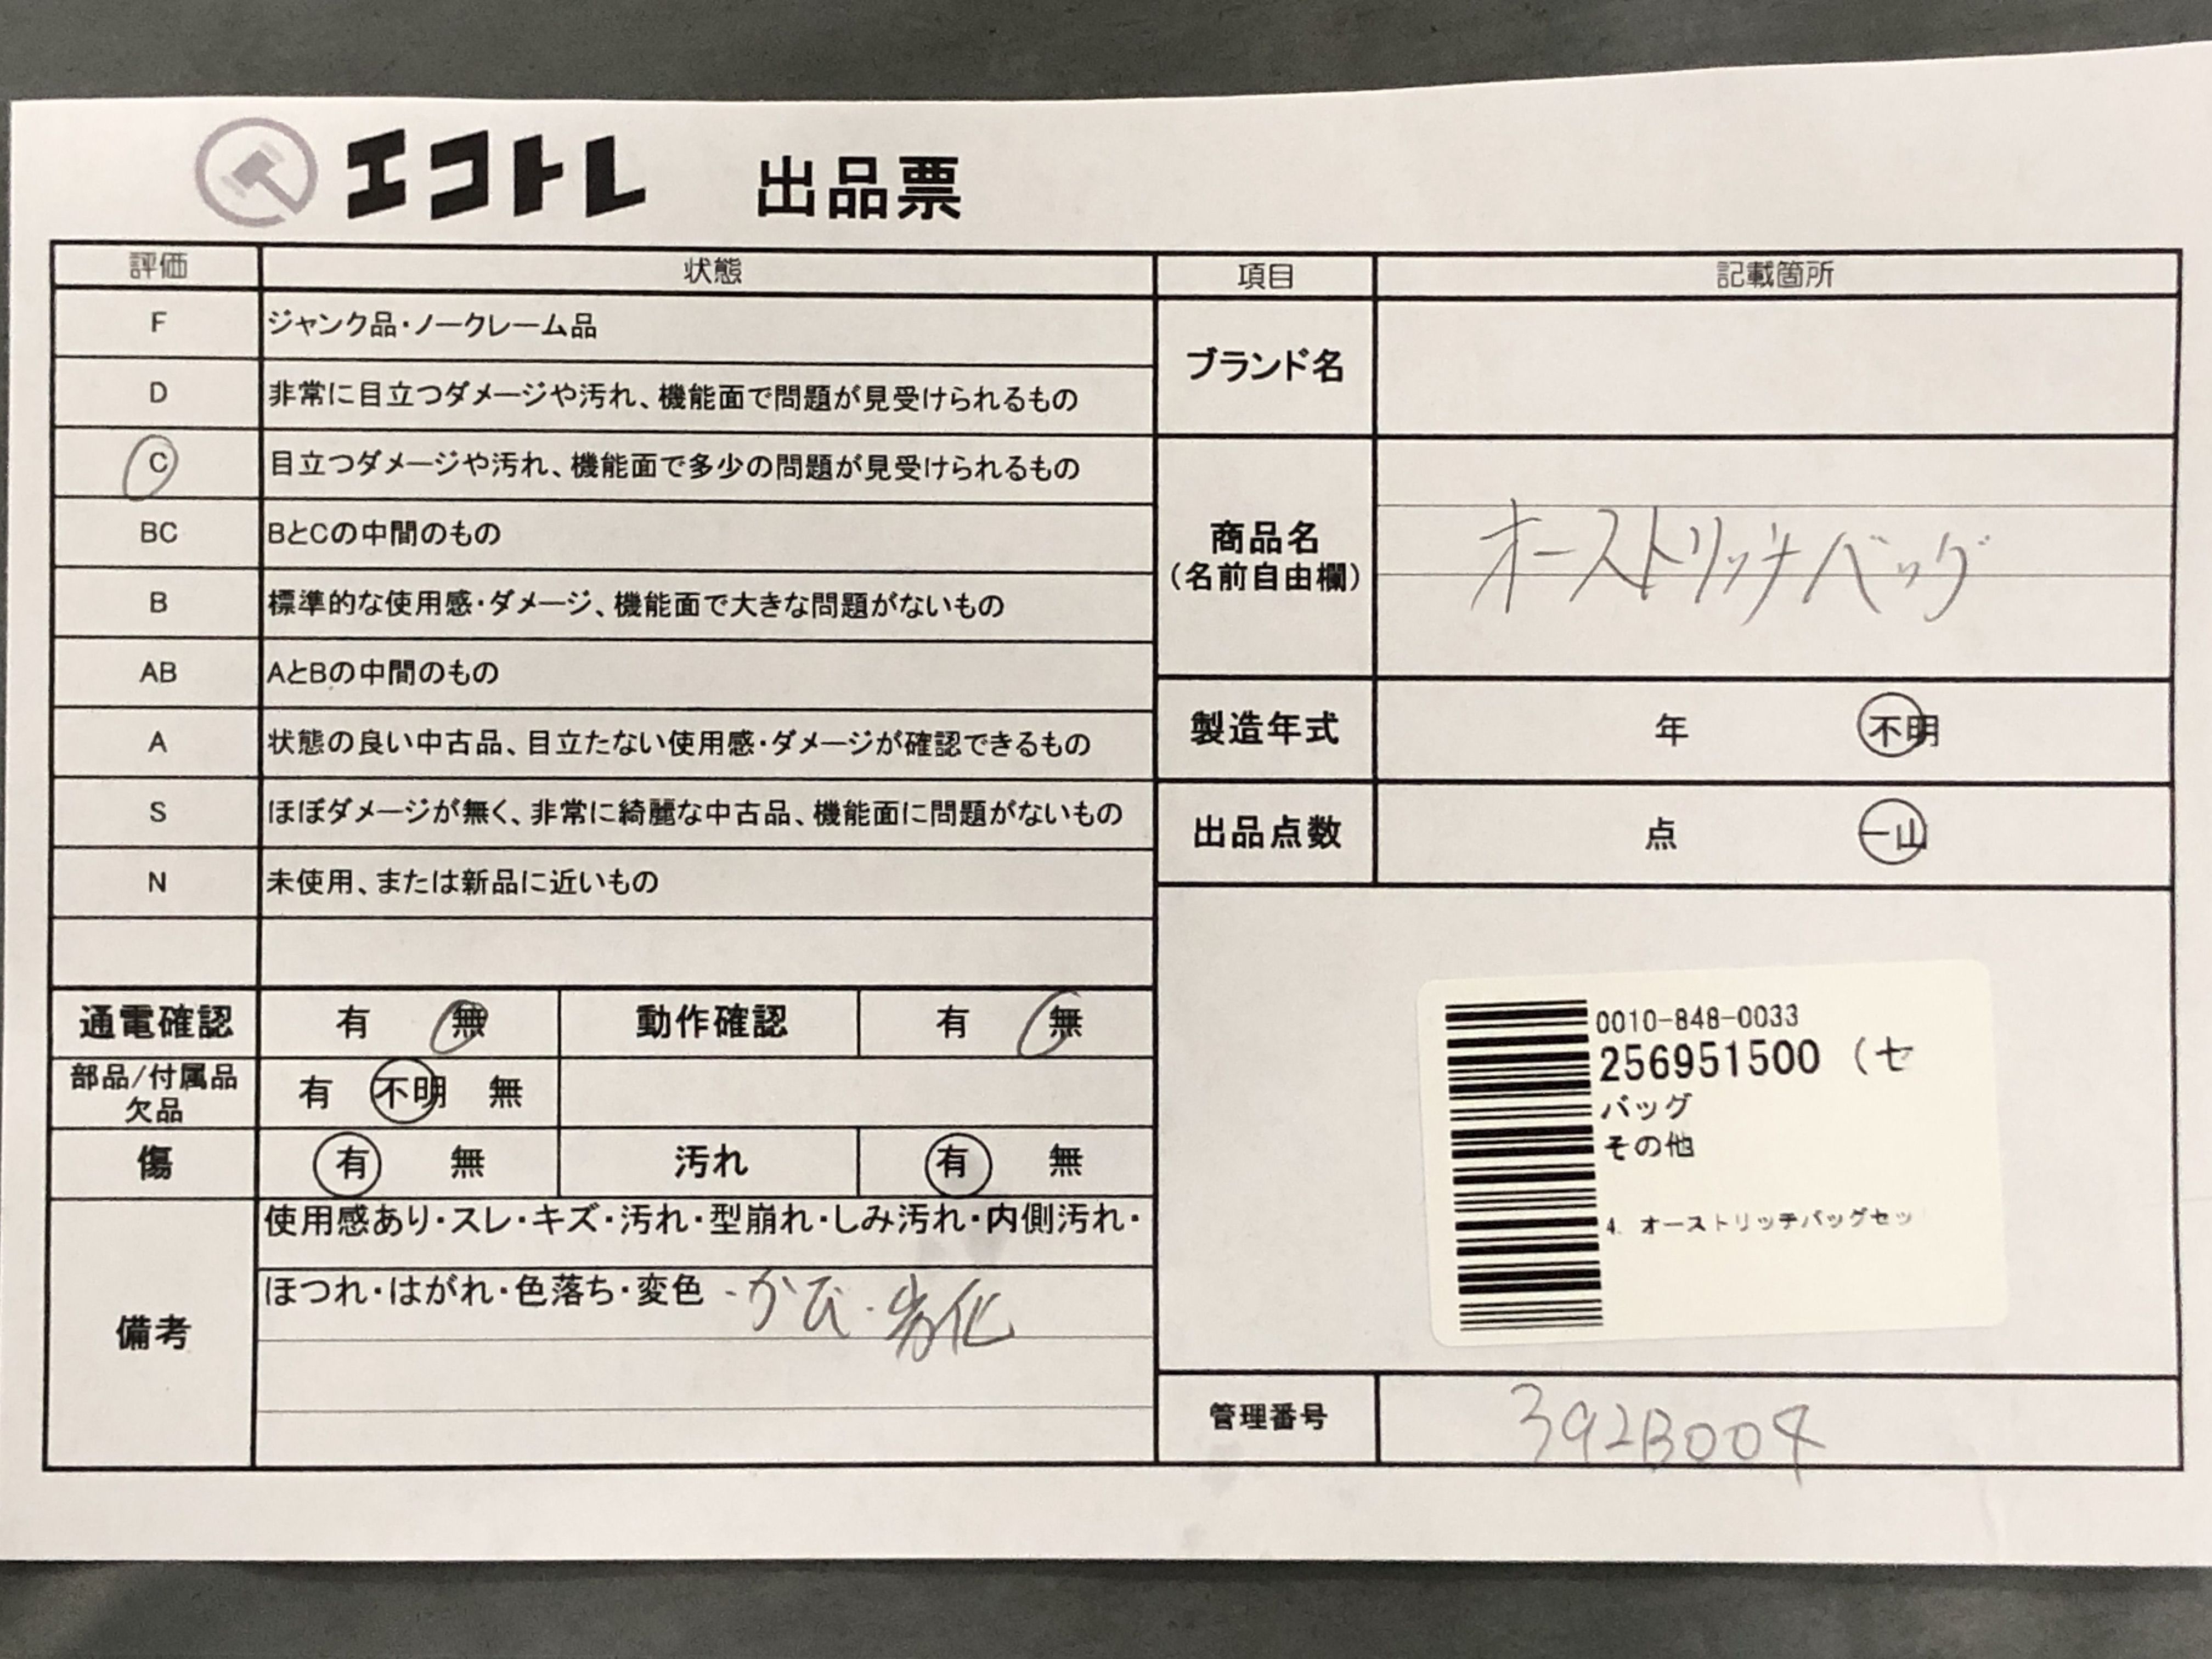 エコトレ 出品票
評価 状態 項目 記載箇所
F ジャンク品・ノークレーム品
ブランド名
D 非常に目立つダメージや汚れ、機能面で問題が見受けられるもの
C 目立つダメージや汚れ、機能面で多少の問題が見受けられるもの
BC BとCの中間のもの
商品名
(名前自由欄)
オーストリッチバッグ
B 標準的な使用感・ダメージ、機能面で大きな問題がないもの
AB AとBの中間のもの
A 状態の良い中古品、目立たない使用感・ダメージが確認できるもの
製造年式 年 不明
S ほぼダメージが無く、非常に綺麗な中古品、機能面に問題がないもの
出品点数 点 一山
N 未使用、または新品に近いもの
通電確認 有 無 動作確認 有 無
部品/付属品
欠品
有 不明 無
傷 有 無 汚れ 有 無
備考
使用感あり・スレ・キズ・汚れ・型崩れ・しみ汚れ・内側汚れ・
ほつれ・はがれ・色落ち・変色・かび・劣化
0010-848-0033
256951500 (セ
バッグ
その他
4. オーストリッチバッグセッ
管理番号 392B004